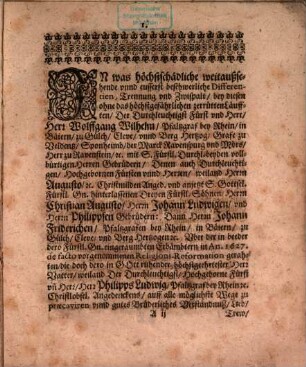 IN was höchstschädliche weitaußse-
hende vnnd eusserst beschwerliche Differen-
tien, Trennung vnd Zwyspalt, bey diesen
ohne das höchstgefährlichen zerrütten Läuff-
ten, Der Durchleuchtigst Fürst vnd Herr,
Herr Wolffgang Wilhelm, Pfaltzgraf bey Rhein, in
Bäiern, zu Gülch, Cleve, vnnd Berg Hertzog, Grafe zu
Veldentz, Sponheimb, der Marck Ravenspurg vnd Mörs,
Herr zu Ravenstein, ꝛc. mit Dero Fürstl. Durchl. beyden
vollbürtigen Herren Gebrüdern, Denen auch Durchleuchti-
gen, Hochgebornen Fürsten vnnd Herren, weiland Herrn
Augusto, ꝛc. Christmilten Angd. vnd anjetzt S. Gottsel.
Fürstl. Gn. hinterlassenen Dreyen Fürstl. Söhnen, Herrn
Christian Augusto, Herrn Johann Ludwigen, vnd
Herrn Philippsen Gebrüdern: Dann Herrn Johann
Friderichen, Pfaltzgrafen bey Rhein, in Bäiern, zu
Gülch, Cleve, vnd Berg Hertzogen ꝛc. Vber die in beyder
dero Fürstl. Gn. eingeraumbten Erbämbtern, in An. 1627.
de facto vorgenommenen Religions-Reformation gerah-
ten, die doch dero in Gott ruhender, höchstgeehrtester Herr
Vatter, weiland Der Durchleuchtigst, Hochgeborne Fürst
vñ Herr, Herr Philipps Ludwig, Pfaltzgraf bey Rhein ꝛc.
Christlöbsel. Angedenckens, auff alle möglichste Wege zu
præcaviren vnnd gutes Brüderliches Verständnuß, Lieb,
A ij
Trew,